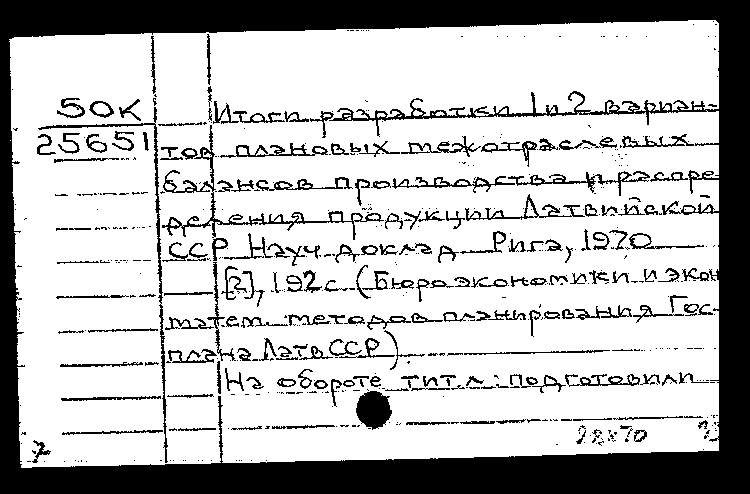 50К
25651
Итоги разработки 1 и 2 вариан-
тов плановых межотраслевых
балансов производства и распре
деления продукции Латвийской
ССР Науч. доклад. Рига, 1970
[2], 192 с. (Бюро экономики и экон
матем. методов планирования Гос-
плана ЛатвССР).
На обороте тит. л.: подготовили
28 х 70
7